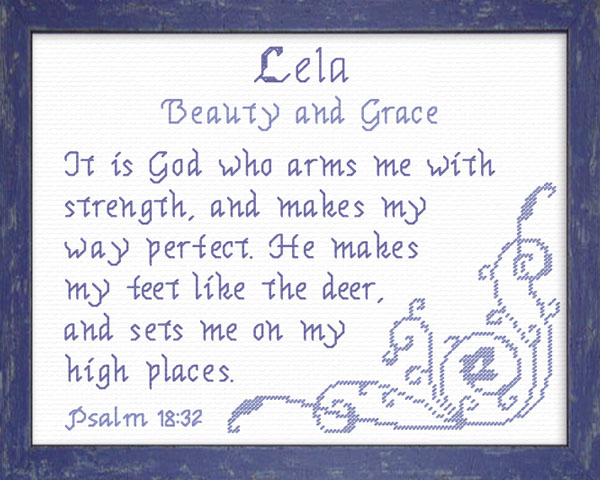 Lela
Beauty and Grace
It is God who arms me with
strength, and makes my
way perfect. He makes
my feet like the deer,
and sets me on my
high places.
Psalm 18:32